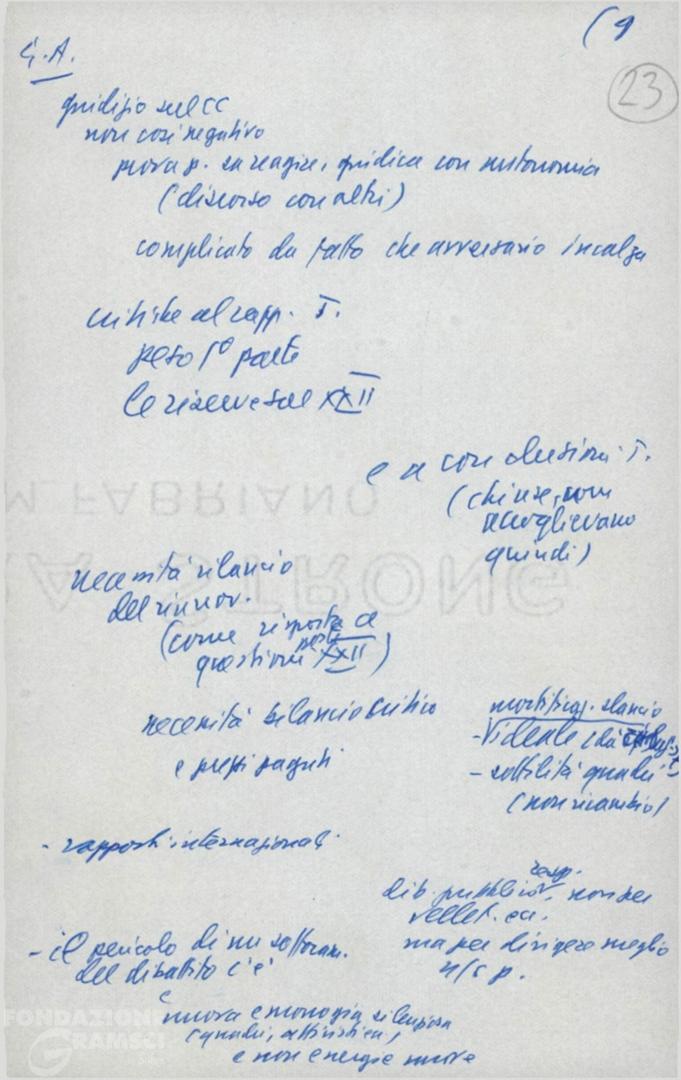 (9
G.A.
23
giudizio sul CC
non così negativo
prova p. sa reagire, giudica con autonomia
(discorso con altri)
complicato da fatto che avversario incalza
critiche al rapp. T.
peso 1° parte
le riserve sul XXII
e a conclusioni T.
(chiuse, non
accoglievano
quindi)
M. FABRIANO
A STRONG
necessità rilancio
del rinnov.
(come risposta a
questioni post XXII)
necessità bilancio critico
e prezzi pagati
mortificaz. slancio
- ideale (da
- sottilità quadri
(non ricambio)
- rapporti internazionali
dib. pubblico resp. non per
vellet. ecc.
ma per dirigere meglio
n/s p.
- il pericolo di un
del dibattito c'è
è nuova emorragia silenziosa
(quadri, attivisti ecc.)
e non energie nuove
FONDAZIONE
GRAMSCI